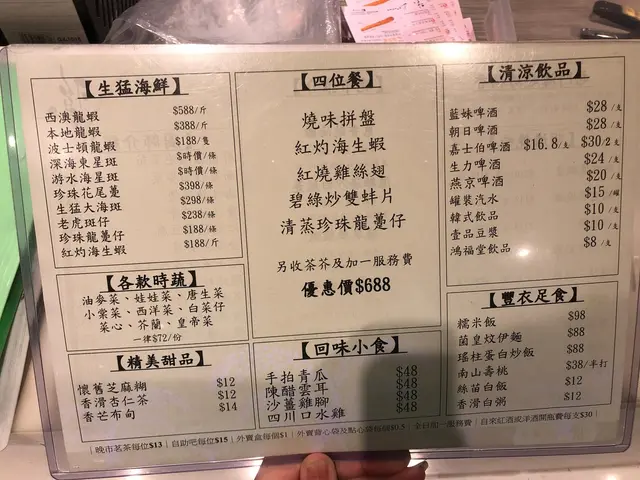 【生猛海鮮】
西澳龍蝦 $588/斤
本地龍蝦 $388/斤
波士頓龍蝦 $188/隻
深海東星斑 $時價/條
游水海星斑 $時價/條
珍珠花尾躉 $398/條
生猛大海斑 $298/條
老虎斑仔 $238/條
珍珠龍躉仔 $188/條
紅灼海生蝦 $188/斤
【各款時蔬】
油麥菜、娃娃菜、唐生菜
小棠菜、西洋菜、白菜仔
菜心、芥蘭、皇帝菜
一律$72/份
【精美甜品】
懷舊芝麻糊 $12
香滑杏仁茶 $12
香芒布甸 $14
【四位餐】
燒味拼盤
紅灼海生蝦
紅燒雞絲翅
碧綠炒雙蚌片
清蒸珍珠龍躉仔
另收茶芥及加一服務費
優惠價$688
【回味小食】
手拍青瓜 $48
陳醋雲耳 $48
沙薑雞腳 $48
四川口水雞 $48
【清涼飲品】
藍妹啤酒 $28/支
朝日啤酒 $28/支
嘉士伯啤酒 $16.8/支 $30/2支
生力啤酒 $24/支
燕京啤酒 $20/支
罐裝汽水 $15/罐
韓式飲品 $10/支
壹品豆漿 $10/支
鴻福堂飲品 $8/支
【豐衣足食】
糯米飯 $98
菌皇炆伊麵 $88
瑤柱蛋白炒飯 $88
南山壽桃 $38/半打
絲苗白飯 $12
香滑白粥 $12
晚市茗茶每位$13｜自助吧每位$15｜外賣盒每個$1｜外賣背心袋及點心袋每個$0.5｜全日加一服務費｜自來紅酒或洋酒開瓶費每支$30｜